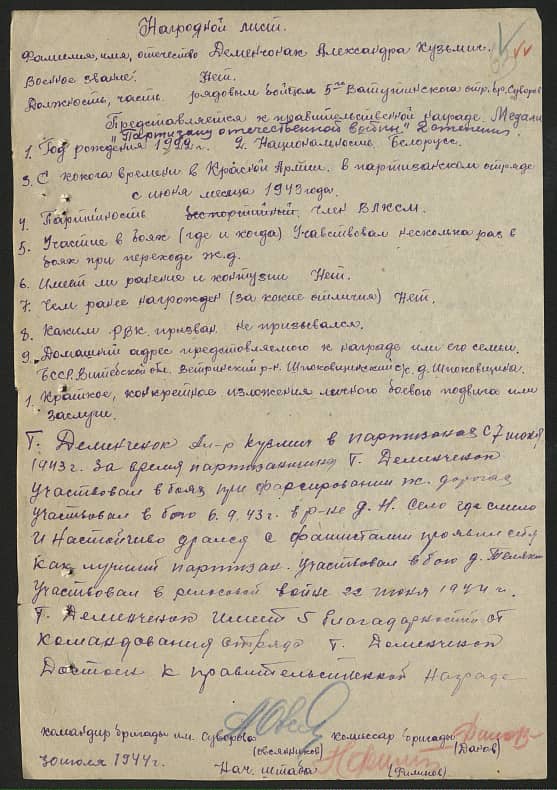 Наградной лист.
Фамилия, имя, отчество Деменчонак Александра Кузьмич.
Военное звание. Нет.
Должность, часть. рядовым бойцом 5го Ватутинского отр. бр. Суворов
Представляется к правительственной награде. Медали
"Партизану отечественной войны" 2 степени.
1. Год рождения 1922 г. 2. Национальность. Белорусс.
3. С какога времени в Красной Армии. в партизанском отряде
с июня месяца 1943 года.
4. Партийность беспортийный член ВЛКСМ.
5. Участие в боях (где и когда) Учавствовал несколька раз в
боях при переходе ж.д.
6. Имеет ли ранение и контузии Нет.
7. Чем ранее награжден (за какие отличия) Нет.
8. Каким РВК. призван. не призывался.
9. Домашний адрес представляемого к награде или его семьи.
БССР. Витебской обл. Ветринский р-н. с/с. д.
1. Краткое, конкретное изложения личного боевого подвига или
заслуги.
Т. Деменченок Ал-р Кузмич в партизанах с 7 июня
1943 г. За время партизанщины Т. Деменченок
Участвовал в боях при фарсировании ж. дорогах
Участвовал в бою 6.9.43 г. в р-не д. Н. Село где смело
И Настойчиво дрался с фашистами проявил себя
Как лучший партизан. Участвовал в бою д.
Участвовал в релсовой войне 22 июня 1944 г.
Т. Деменченок имеет 5 благадарностий от
Командования отряда Т. Деменченок
Достоен к правительственной награде
командир бригады им. Суворова комиссар бригады
(Овсянников) (Данов)
30 июля 1944 г. Нач. штаба (Филинов)